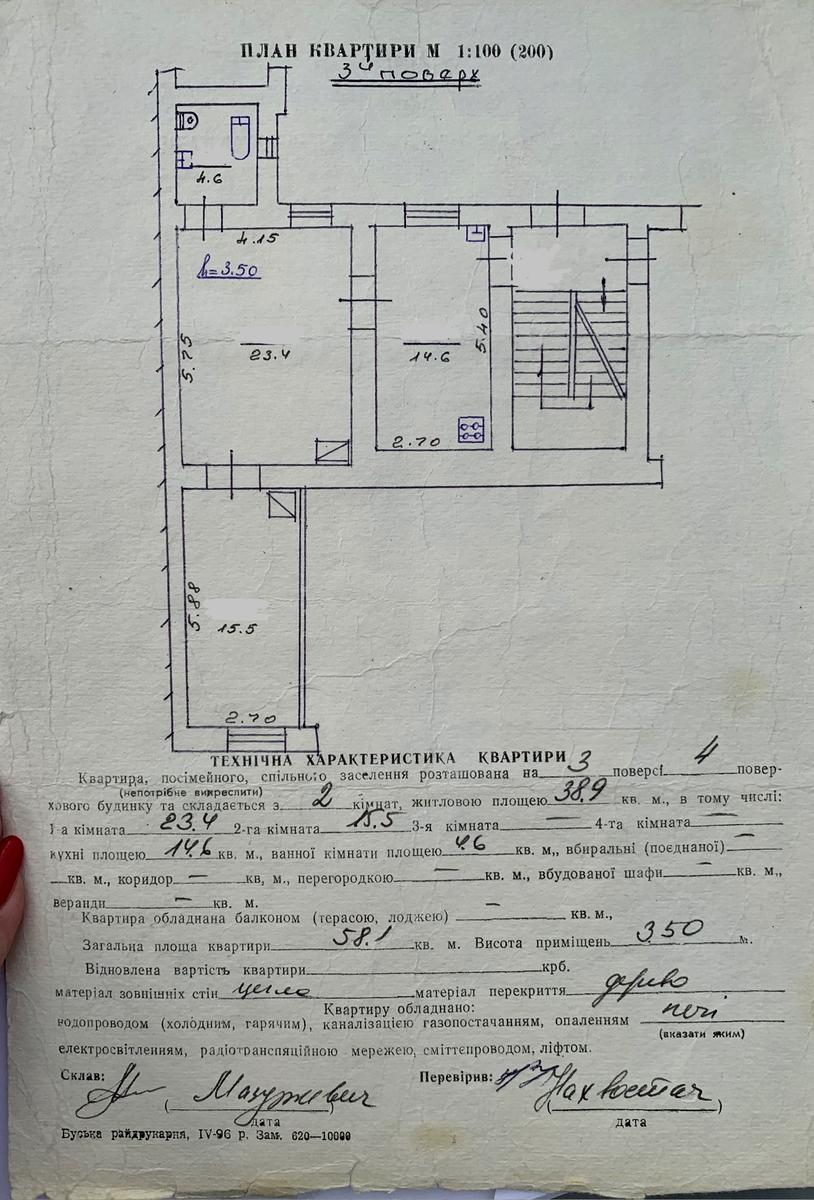 ПЛАН КВАРТИРИ М 1:100 (200)
3й поверх
4.6
4.15
h=3.50
5.75
23.4
14.6
5.40
2.70
5.88
15.5
2.70
ТЕХНІЧНА ХАРАКТЕРИСТИКА КВАРТИРИ
Квартира, посімейного, спільного заселення розташована на 3 поверсі 4 повер-
(непотрібне викреслити)
хового будинку та складається з 2 кімнат, житловою площею 38.9 кв. м., в тому числі:
1-а кімната 23.4 2-га кімната 15.5 3-я кімната — 4-та кімната —
кухні площею 14.6 кв. м., ванної кімнати площею 4.6 кв. м,, вбиральні (поєднаної) —
кв. м., коридор — кв, м., перегородкою — кв. м., вбудованої шафи — кв. м.,
веранди — кв. м.
Квартира обладнана балконом (терасою, лоджею) — кв. м.,
Загальна площа квартири 58.1 кв. м. Висота приміщень 3.50 м.
Відновлена вартість квартири крб.
матеріал зовнішніх стін цегла матеріал перекриття дерево
Квартиру обладнано:
водопроводом (холодним, гарячим), каналізацією газопостачанням, опаленням печі
(вказати яким)
електросвітленням, радіотрансляційною мережею, сміттепроводом, ліфтом.
Склав: (Мазуркевич) Перевірив: (Нахвостач)
дата дата
Буська райдрукарня, IV-96 р. Зам. 620—10000